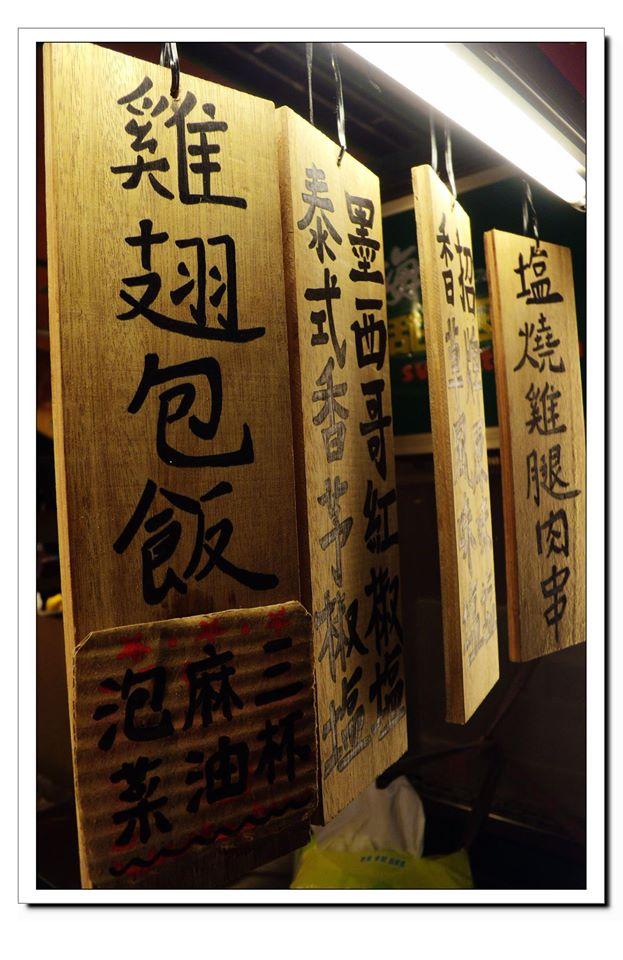 雞翅包飯
三杯
麻油
泡菜
墨西哥紅椒塩
泰式香茅椒塩
招
香 風味
塩燒雞腿肉串